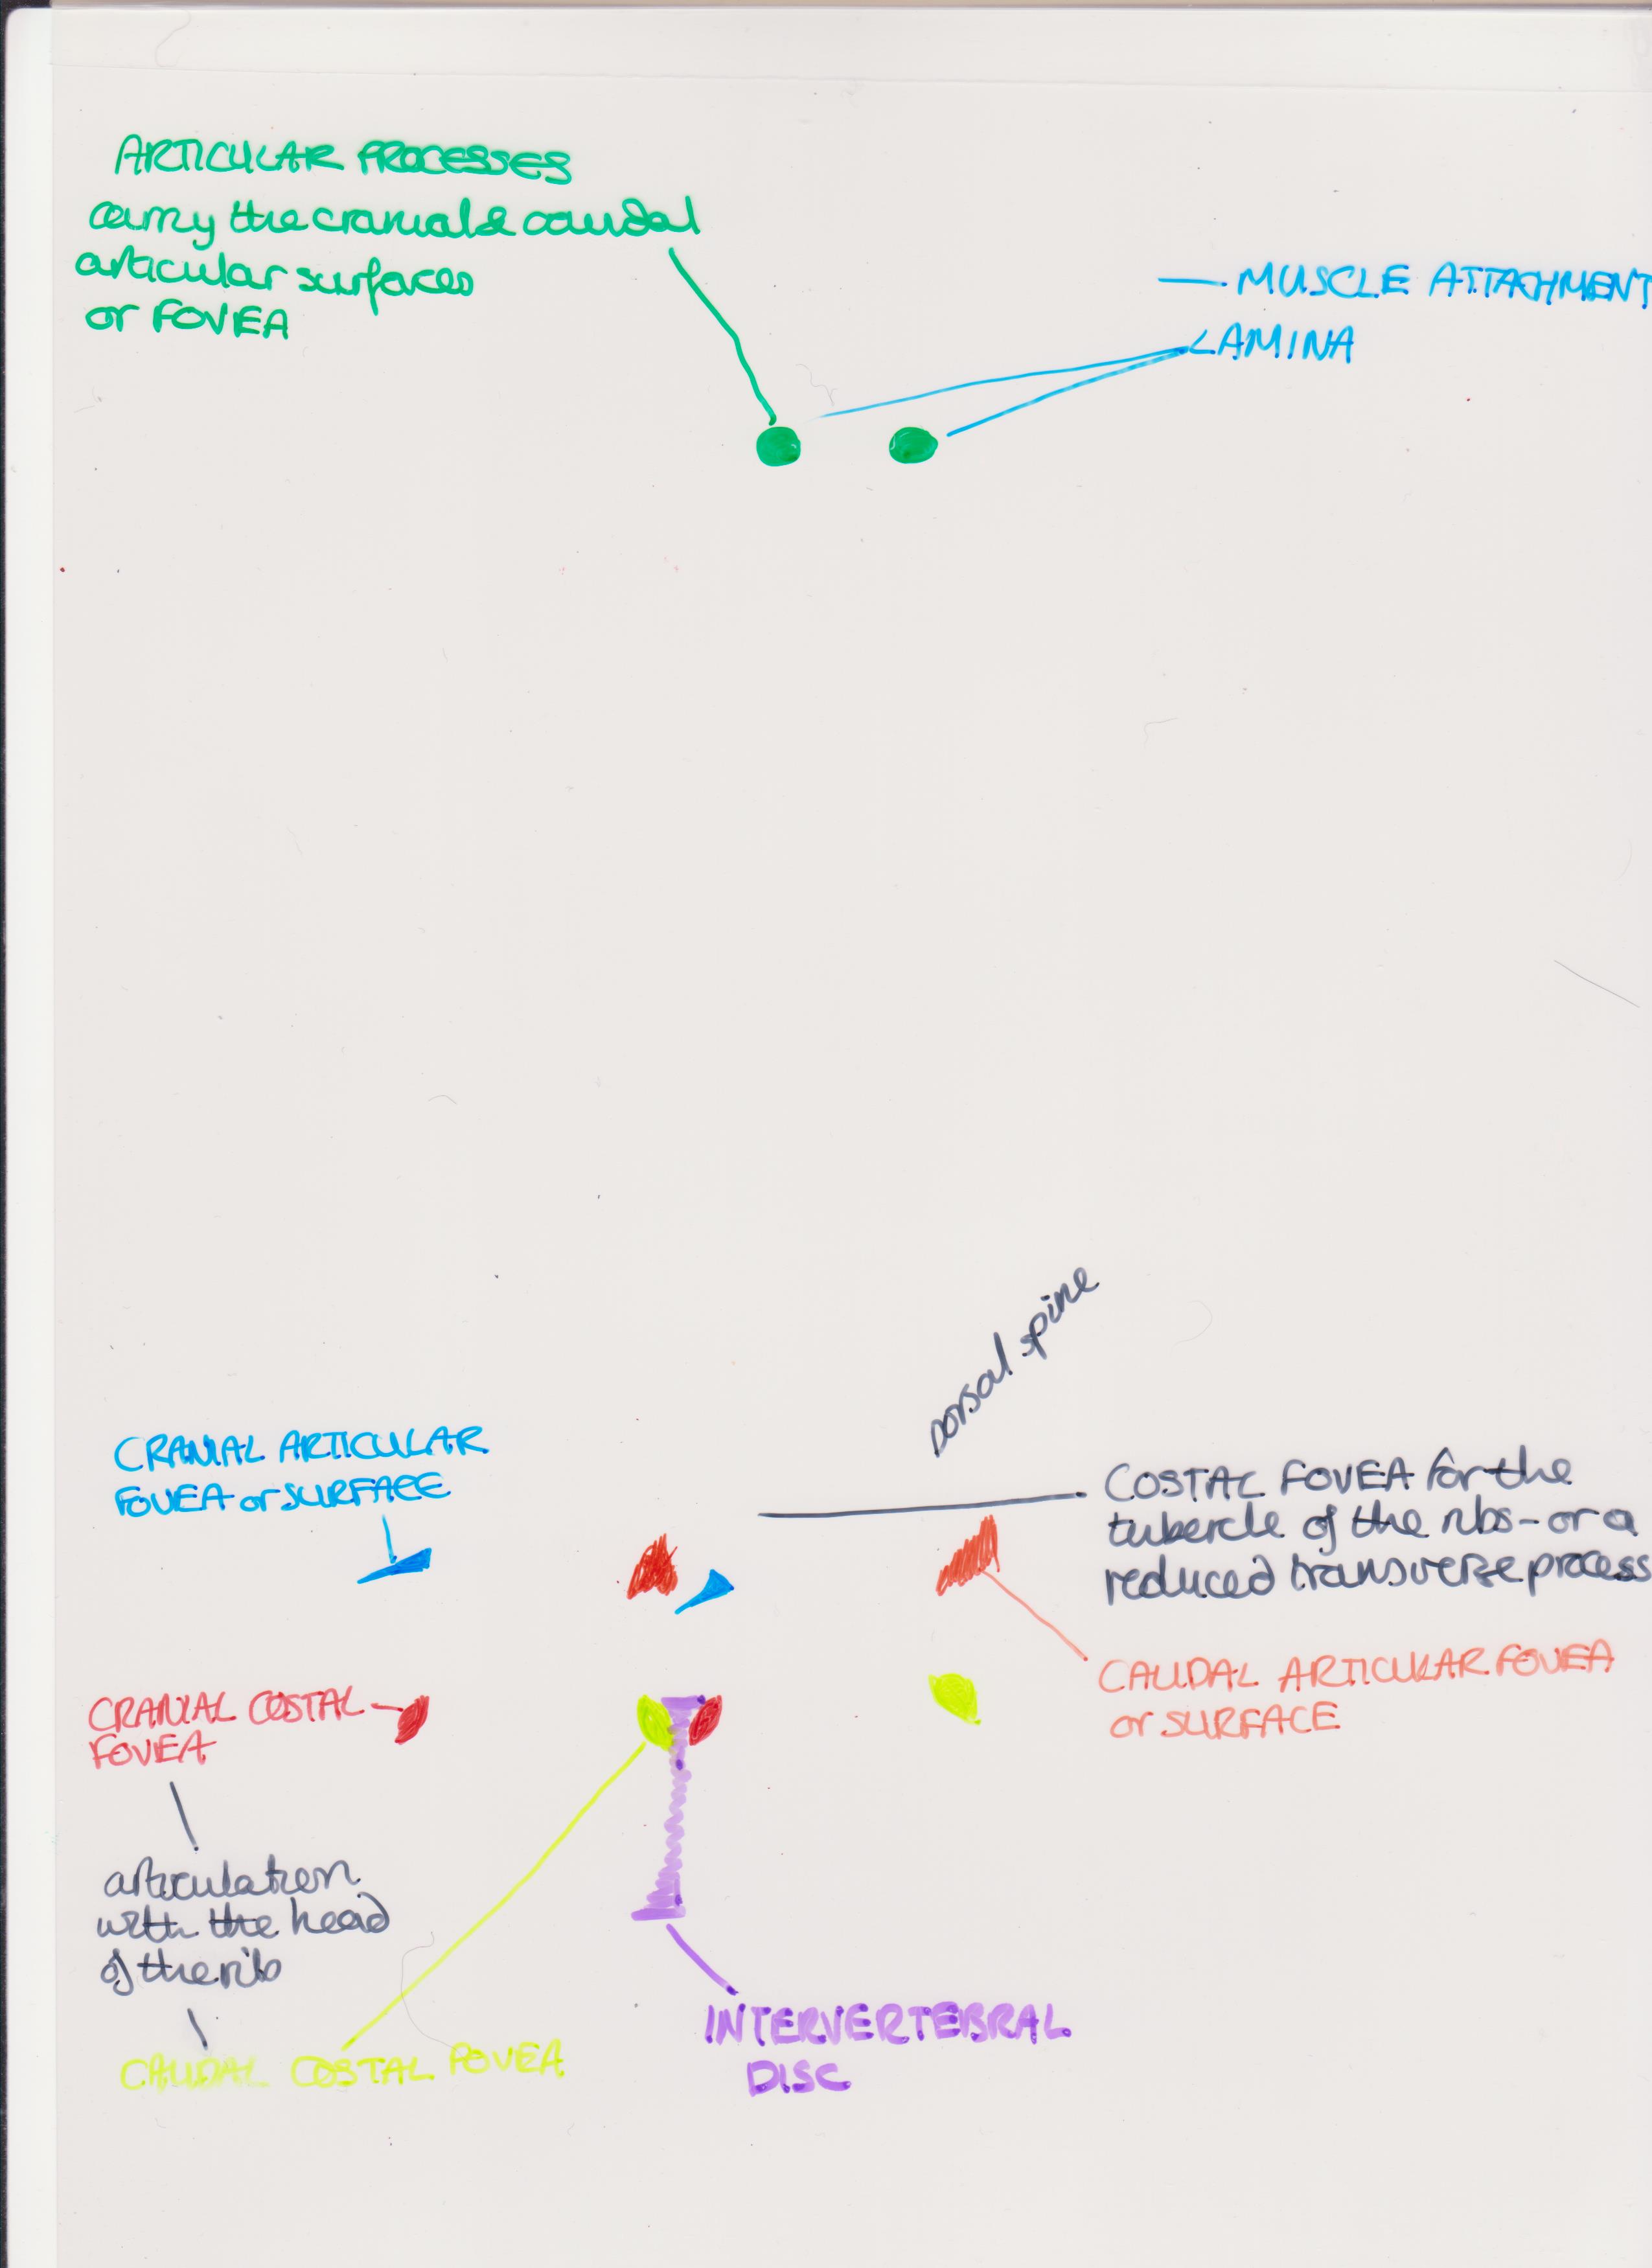 ARTICULAR PROCESSES
carry the cranial & caudal
articular surfaces
or FOVEA
MUSCLE ATTACHMENT
LAMINA
Dorsal spine
CRANIAL ARTICULAR
FOVEA or SURFACE
COSTAL FOVEA for the
tubercle of the ribs - or a
reduced transverse process
CAUDAL ARTICULAR FOVEA
or SURFACE
CRANIAL COSTAL
FOVEA
articulation
with the head
of the rib
CAUDAL COSTAL FOVEA
INTERVERTEBRAL
DISC